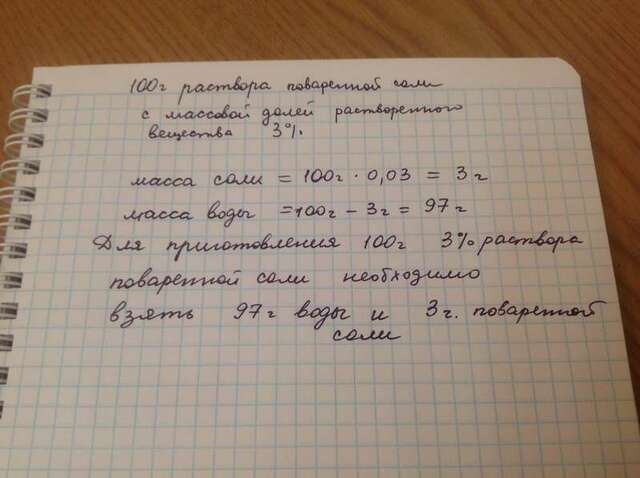 100г раствора поваренной соли
с массовой долей растворенного
вещества 3%.
масса соли = 100г · 0,03 = 3г
масса воды = 100г – 3г = 97г
Для приготовления 100г 3% раствора
поваренной соли необходимо
взять 97г воды и 3г. поваренной
соли